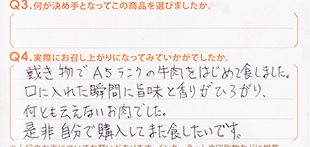 Q3.何が決め手となってこの商品を選びましたか。
Q4.実際にお召し上がりになってみていかがでしたか。
戴き物でA5ランクの牛肉をはじめて食しました。
口に入れた瞬間に旨味と香りがひろがり、
何とも云えないお肉でした。
是非自分で購入してまた食したいです。